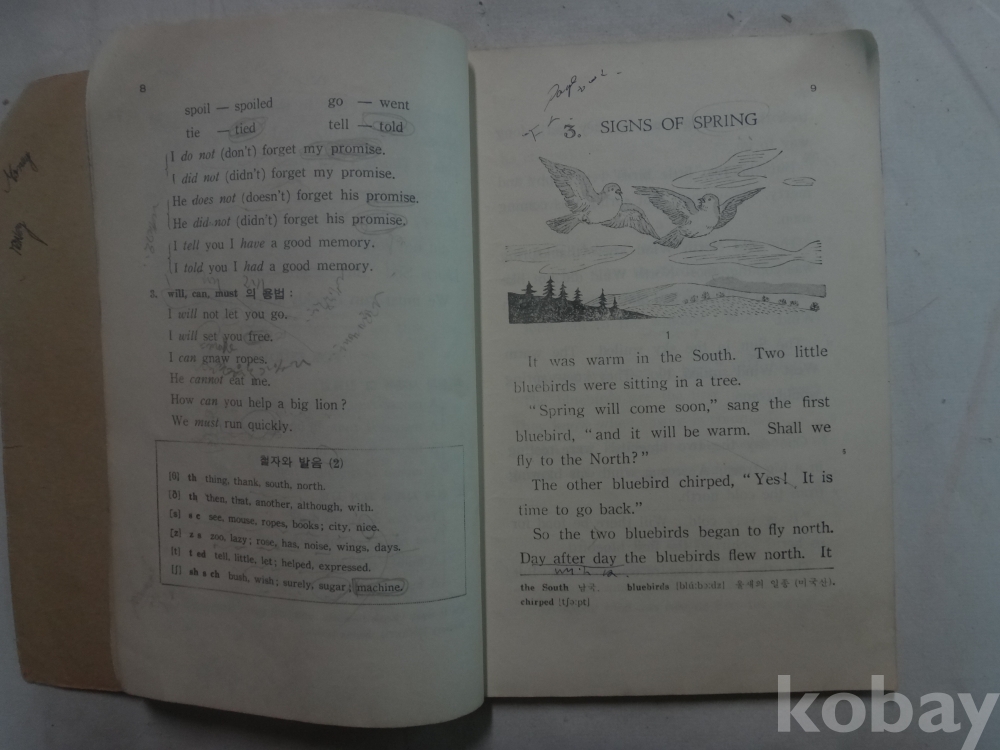 8
spoil — spoiled go — went
tie — tied tell — told
I do not (don't) forget my promise.
I did not (didn't) forget my promise.
He does not (doesn't) forget his promise.
He did not (didn't) forget his promise.
I tell you I have a good memory.
I told you I had a good memory.
3. will, can, must 의 용법 :
I will not let you go.
I will set you free.
I can gnaw ropes.
He cannot eat me.
How can you help a big lion?
We must run quickly.
철자와 발음 (2)
[θ] th thing, thank, south, north.
[ð] th then, that, another, although, with.
[s] s c see, mouse, ropes, books; city, nice.
[z] z s zoo, lazy; rose, has, noise, wings, days.
[t] t ed tell, little, let; helped, expressed.
[ʃ] sh s ch bush, wish; surely, sugar; machine.
9
3. SIGNS OF SPRING
1
It was warm in the South. Two little
bluebirds were sitting in a tree.
"Spring will come soon," sang the first
bluebird, "and it will be warm. Shall we
fly to the North?"
The other bluebird chirped, "Yes! It is
time to go back."
So the two bluebirds began to fly north.
Day after day the bluebirds flew north. It
the South 남국. bluebirds [blú:bə:dz] (미국산).
chirped [tʃə:pt]
kobay